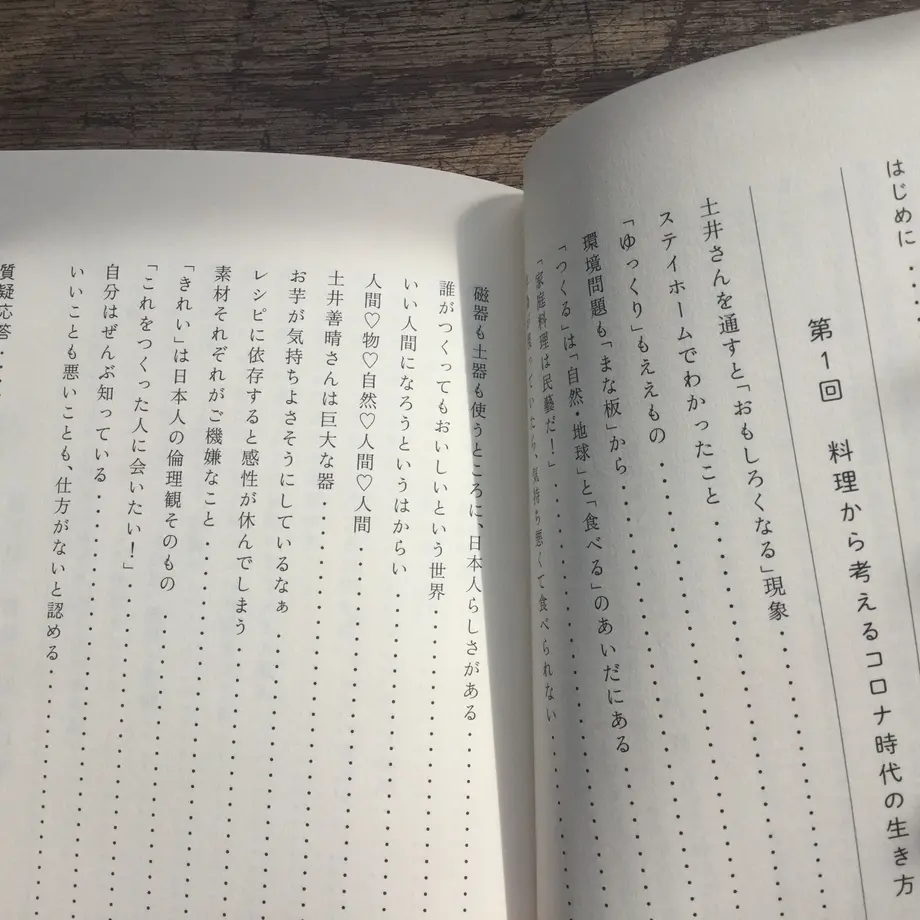 はじめに・・・・
第1回 料理から考えるコロナ時代の生き方
土井さんを通すと「おもしろくなる」現象・・・・・・・・・
ステイホームでわかったこと・・・・・・・・・・・・
「ゆっくり」もええもの・・・・・・・・・・・・・・
環境問題も「まな板」から・・・・・・・・・・・・・・
「つくる」は「自然・地球」と「食べる」のあいだにある・・・・・・
「家庭料理は民藝だ!」・・・・・・・・・・・・・・
気持ち悪くて食べられない
磁器も土器も使うところに、日本人らしさがある・・・・・・・
誰がつくってもおいしいという世界・・・・・・・・・・・
いい人間になろうというはからい・・・・・・・・・・・
人間♡物♡自然♡人間♡人間・・・・・・・・・・・・
土井善晴さんは巨大な器・・・・・・・・・・・・・
お芋が気持ちよさそうにしているなぁ・・・・・・・・・
レシピに依存すると感性が休んでしまう・・・・・・・・・
素材それぞれがご機嫌なこと・・・・・・・・・・・・
「きれい」は日本人の倫理観そのもの・・・・・・・・・・
「これをつくった人に会いたい!」・・・・・・・・・・・
自分はぜんぶ知っている・・・・・・・・・・・・・
いいことも悪いことも、仕方がないと認める・・・・・・・・
質疑応答・・・